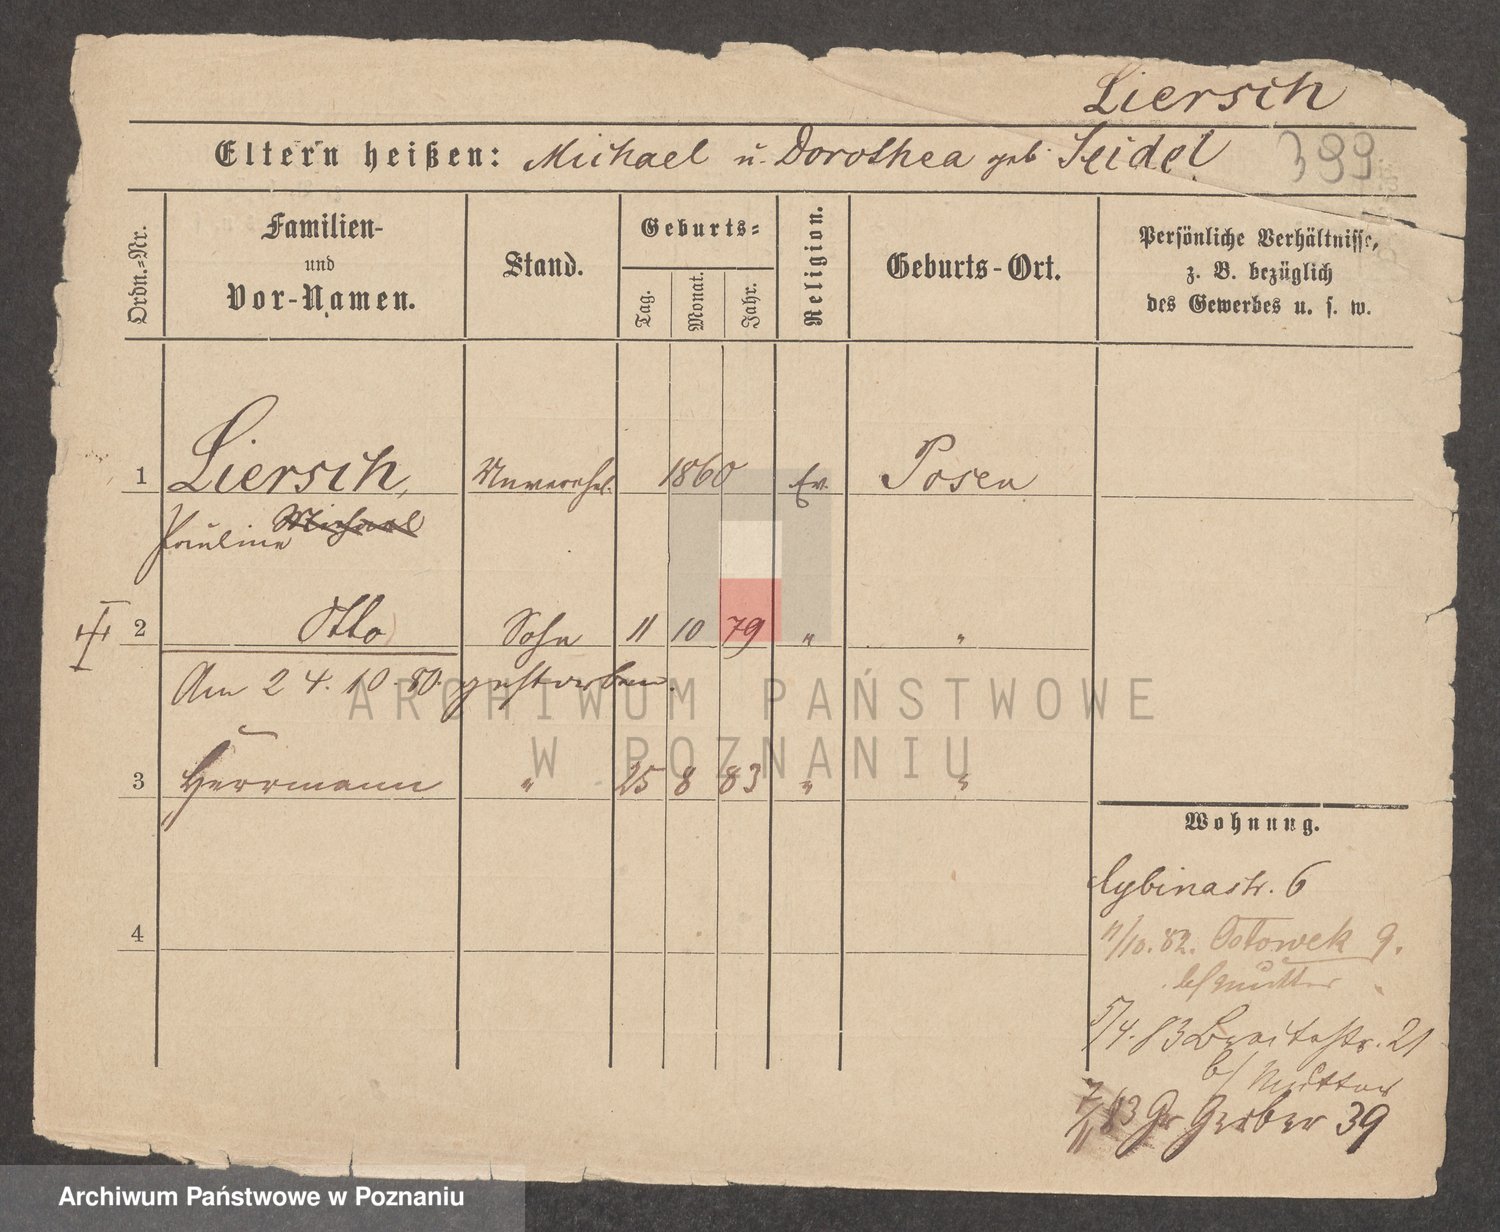 Liersch
Eltern heißen: Michael u. Dorothea geb Seidel.
399
Ordn.-Nr.
Familien-
und
Vor-Namen.
Stand.
Geburts-
Tag.
Monat.
Jahr.
Religion.
Geburts-Ort.
Persönliche Verhältnisse,
z. B. bezüglich
des Gewerbes u. s. w.
1 Liersch, Unverehel. 1860 Ev. Posen
Pauline Michael
2 Otto Sohn 11 10 79 " "
Am 24.10.80. gestorben.
3 Herrmann " 25 8 83 " "
4
Wohnung.
Cybinastr. 6
11/10.82. Ostowek 9.
b/ Mutter
5/4.83 Breitestr. 21
b/ Mutter
7/11 83 Gr Gerber 39
ARCHIWUM PAŃSTWOWE
W POZNANIU
Archiwum Państwowe w Poznaniu